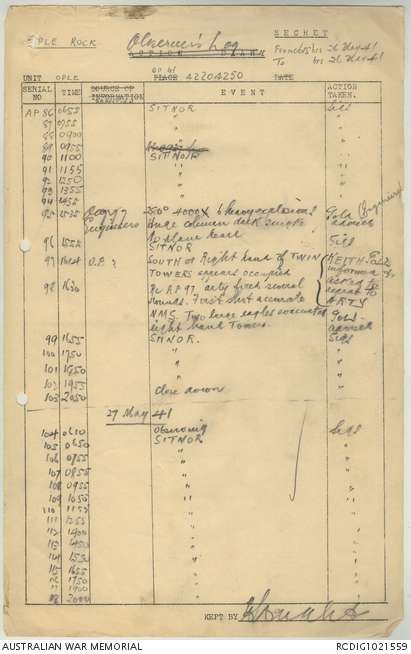 OPLE ROCK
Observer's Log
SECRET
From hrs 26 May 41
To hrs 26 May 41
UNIT OPLE
OP at
PLACE 42204250
DATE
SERIAL NO
TIME
SOURCE OF INFORMATION
EVENT
ACTION TAKEN.
AP 86 0655 SITNOR Sigs
87 0755 " "
88 0900 " "
89 0955 " "
90 1100 SITNOR "
91 1155 " "
92 1250 " "
93 1355 " "
94 1455 " "
95 1535 Engineers 250° 4000x 6 heavy explosions Gold Engineers
Huge column dark smoke advised
No plane heard
96 1552 SITNOR Sigs
97 1614 O.P. 2 SOUTH of Right hand of TWIN KEITH
TOWERS appears occupied informed
98 1630 Re AP 97, arty fired several asked to
rounds. First shot accurate
ARTY
N.M.S. Two large eagles evacuated Gold
right hand Tower. advised
99 1655 SITNOR. Sigs
100 1750 " "
101 1850 " "
102 1955 " "
103 2050 Close down "
27 May 41
104 0610 Observing Sigs
105 0650 SITNOR "
106 0755 " "
107 0855 " "
108 0955 " "
109 1050 " "
110 1155 " "
111 1255 " "
112 1400 " "
113 1450 " "
114 1550 " "
115 1655 " "
116 1750 " "
117 1900 " "
118 2000 " "
KEPT BY
AUSTRALIAN WAR MEMORIAL
RCDIG1021559